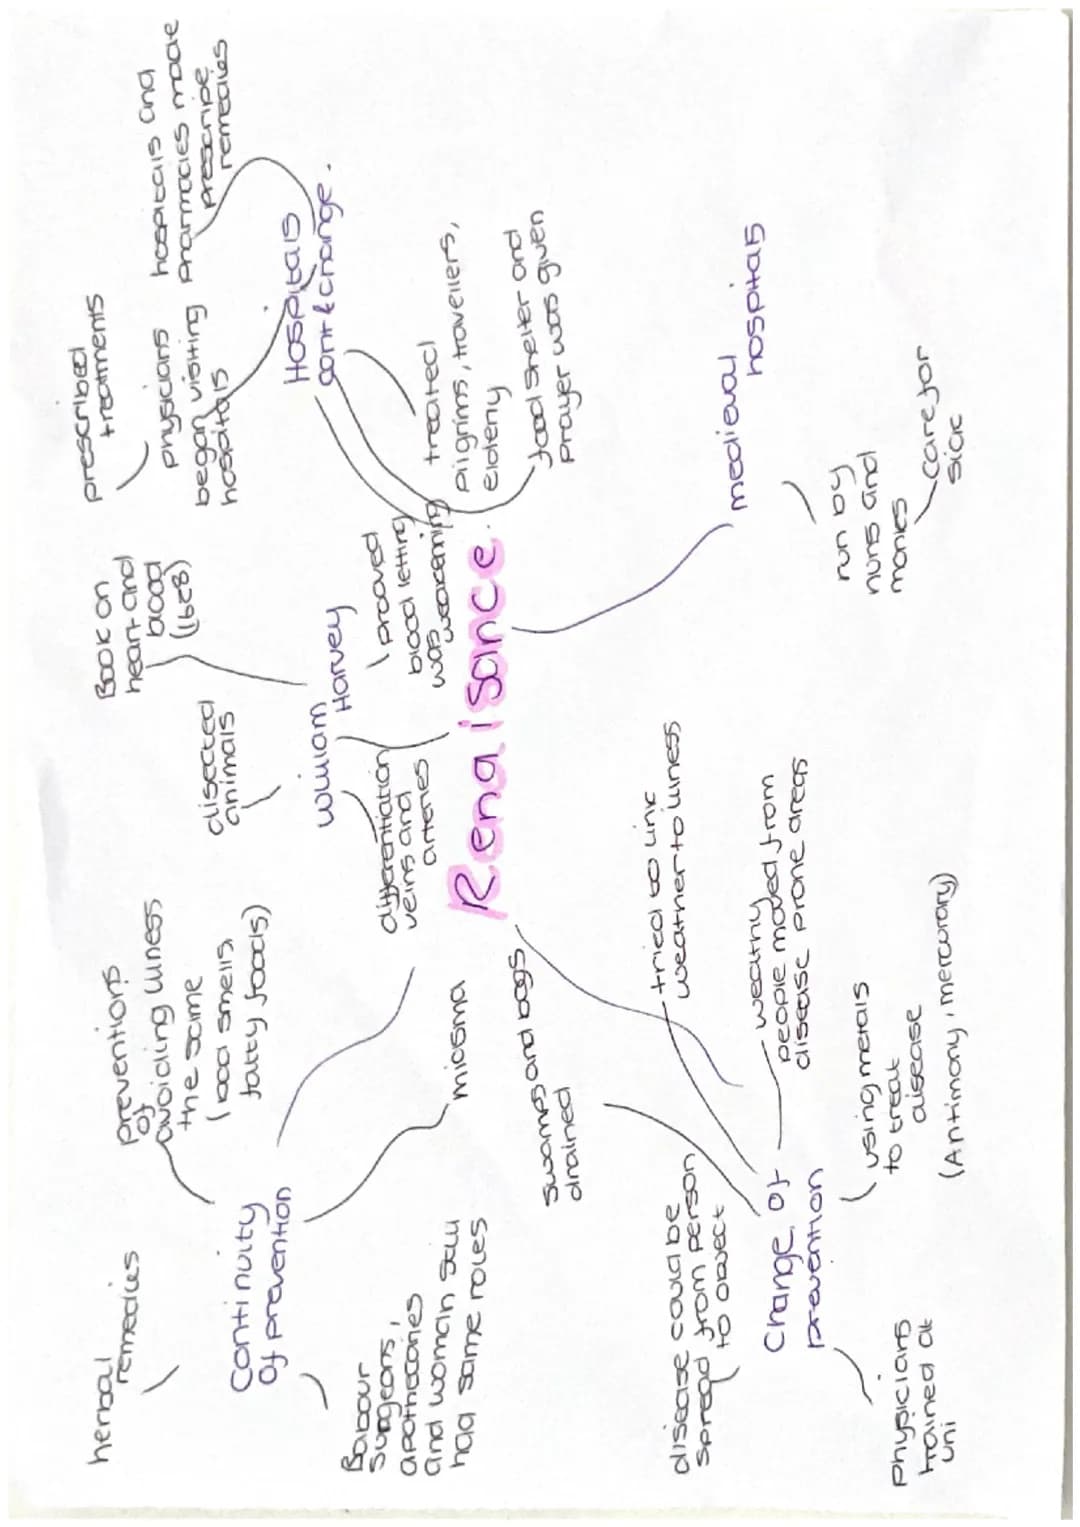 Renaisance.
Continuity
of prevention
herbal
remedies
preventions
of
avoiding illness
the same
(bad smells,
fatty foods)
miasma
Babour
surgeons,
apothecaries
and woman still
had same roles
William
Harvey
disected
animals
Book on
heart and
blood
(1628)
prooved
blood letting
was weakening
differentiation
veins and
arteries
Hospitals
cont & change.
prescribed
treatments
physicians
began visiting
hospitals
hospitals and
pharmacies made
prescripe
remedies
treated
pilgrims, travellers,
elderly
food shelter and
prayer was given
medieval
hospitals
run by
nuns and
monks
care for
sick
Change of
prevention
swamps and bogs
drained
tried to link
weather to illness
wealthy
people moved from
disease prone areas
using metals
to treat
disease
(Antimony, mercurary)
disease could be
spread from person
to object
physicians
trained at
uni